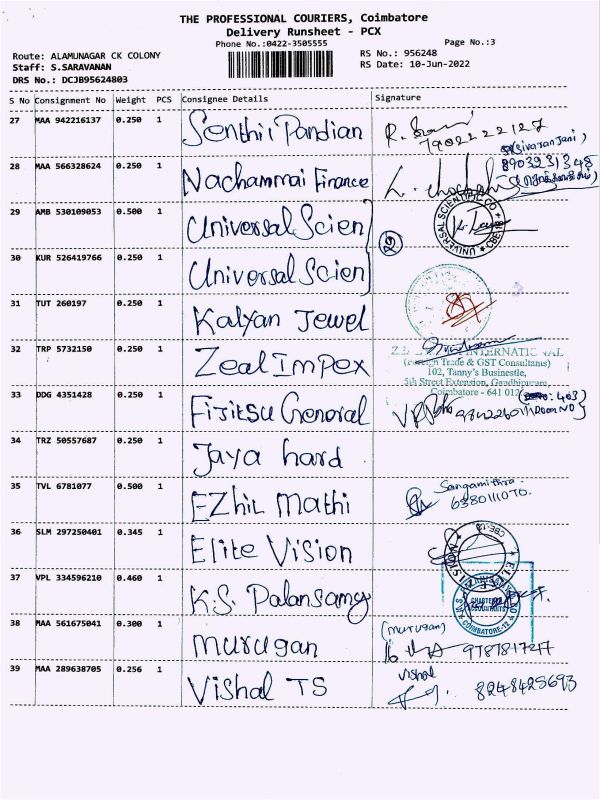 THE PROFESSIONAL COURIERS, Coimbatore
Delivery Runsheet - PCX
Phone No.:0422-3505555
Page No.:3
Route: ALAMUNAGAR CK COLONY
RS No.: 956248
Staff: S.SARAVANAN
RS Date: 10-Jun-2022
DRS No.: DCJB95624803
S No Consignment No Weight PCS Consignee Details Signature
27 MAA 942216137 0.250 1 Senthil Pandian
7902222127
28 MAA 566328624 0.250 1 Nachammai Finance
(Sivaranjani)
8903931348
29 AMB 530109053 0.500 1 Universal Scien
UNIVERSAL SCIENTIFIC CO CBE-18
29
30 KUR 526419766 0.250 1 Universal Scien
31 TUT 260197 0.250 1 Kalyan Jewel
32 TRP 5732150 0.250 1 Zeal Impex
INTERNATIONAL
(Foreign Trade & GST Consultants)
102, Tanny's Businestle,
5th Street Extension, Gandhipuram,
Coimbatore - 641 012
33 DDG 4351428 0.250 1 Fijitsu General
: 403
Door No
34 TRZ 50557687 0.250 1 Jaya hard
35 TVL 6781077 0.500 1 EZhil Mathi
Sangamithra
36 SLM 297250401 0.345 1 Elite Vision
CBE-12
37 VPL 334596210 0.460 1 K.S. Palansamy
CHARTERED ACCOUNTANTS
COIMBATORE-12
38 MAA 561675041 0.300 1 Murugan
(Murugan)
9787817217
39 MAA 289638705 0.256 1 Vishal TS
Vishal
8248425693